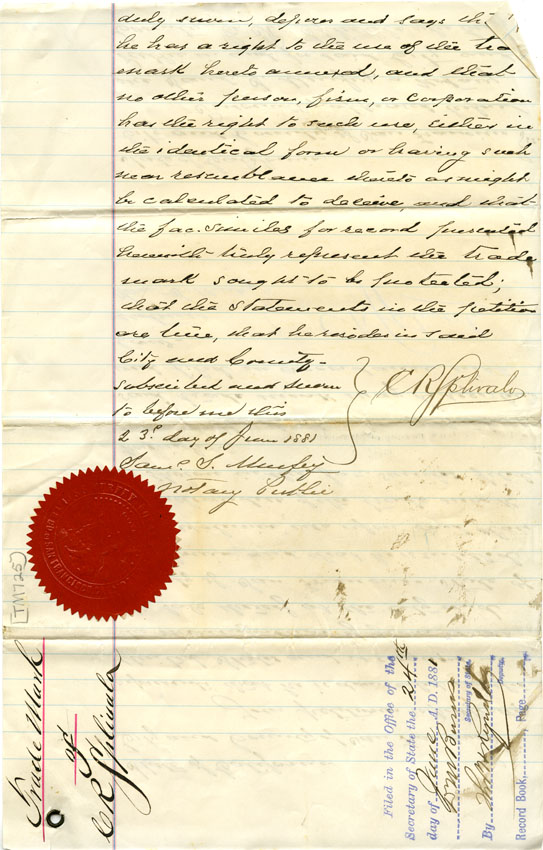 duly sworn, deposes and says that
he has a right to the use of the tra
mark hereto annexed, and that
no other person, firm, or corporation
has the right to such use, either in
the identical form or having such
near resemblance thereto as might
be calculated to deceive, and that
the fac.similes for record presented
herewith truly represent the trade
mark sought to be protected;
that the statements in the petition
are true, that he resides in said
City and County.
subscribed and sworn
to before me this
23d day of June 1881
C R Splivalo
Saml S. Murfey
Notary Public
TM725
Trade Mark
of
C R Splivalo
Filed in the Office of the
Secretary of State the 24th
day of June A. D. 1881
D M Burns
Secretary of State
By
Deputy
Record Book Page